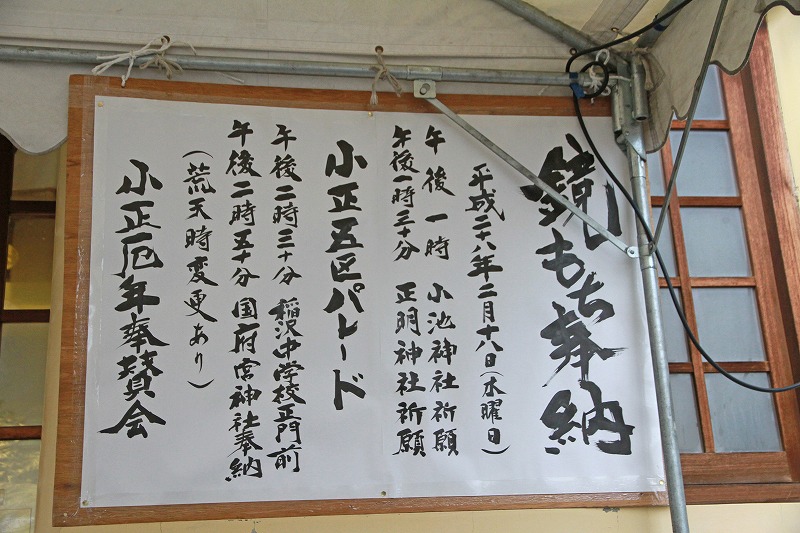 鏡もち奉納
平成二十六年二月十八日(水曜日)
午後一時 小池神社祈願
午後一時三十分 正明神社祈願
小正五区パレード
午後二時三十分 稲沢中学校正門前
午後二時五十分 国府宮神社奉納
(荒天時変更あり)
小正厄年奉賛会